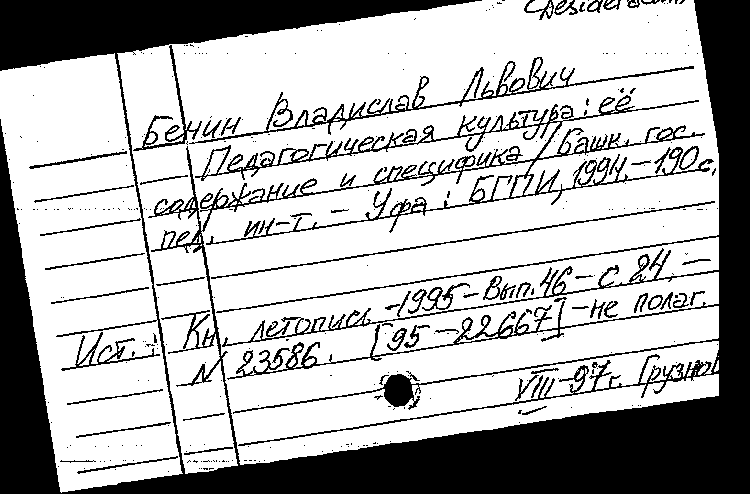 Desiderata
Бенин Владислав Львович
Педагогическая культура: её
содержание и специфика / Башк. гос.
пед. ин-т. – Уфа: БГПИ, 1994. – 190 с.
Ист.: Кн. летопись. – 1995 – Вып. 46 – с. 24. –
N 23586. [95 – 22667] – не полаг.
VIII – 97 г. Грузнов